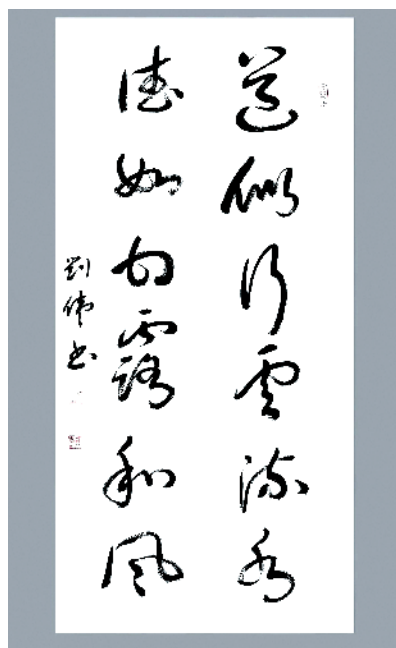 道似行雲流水
德如甘露和風
劉偉書